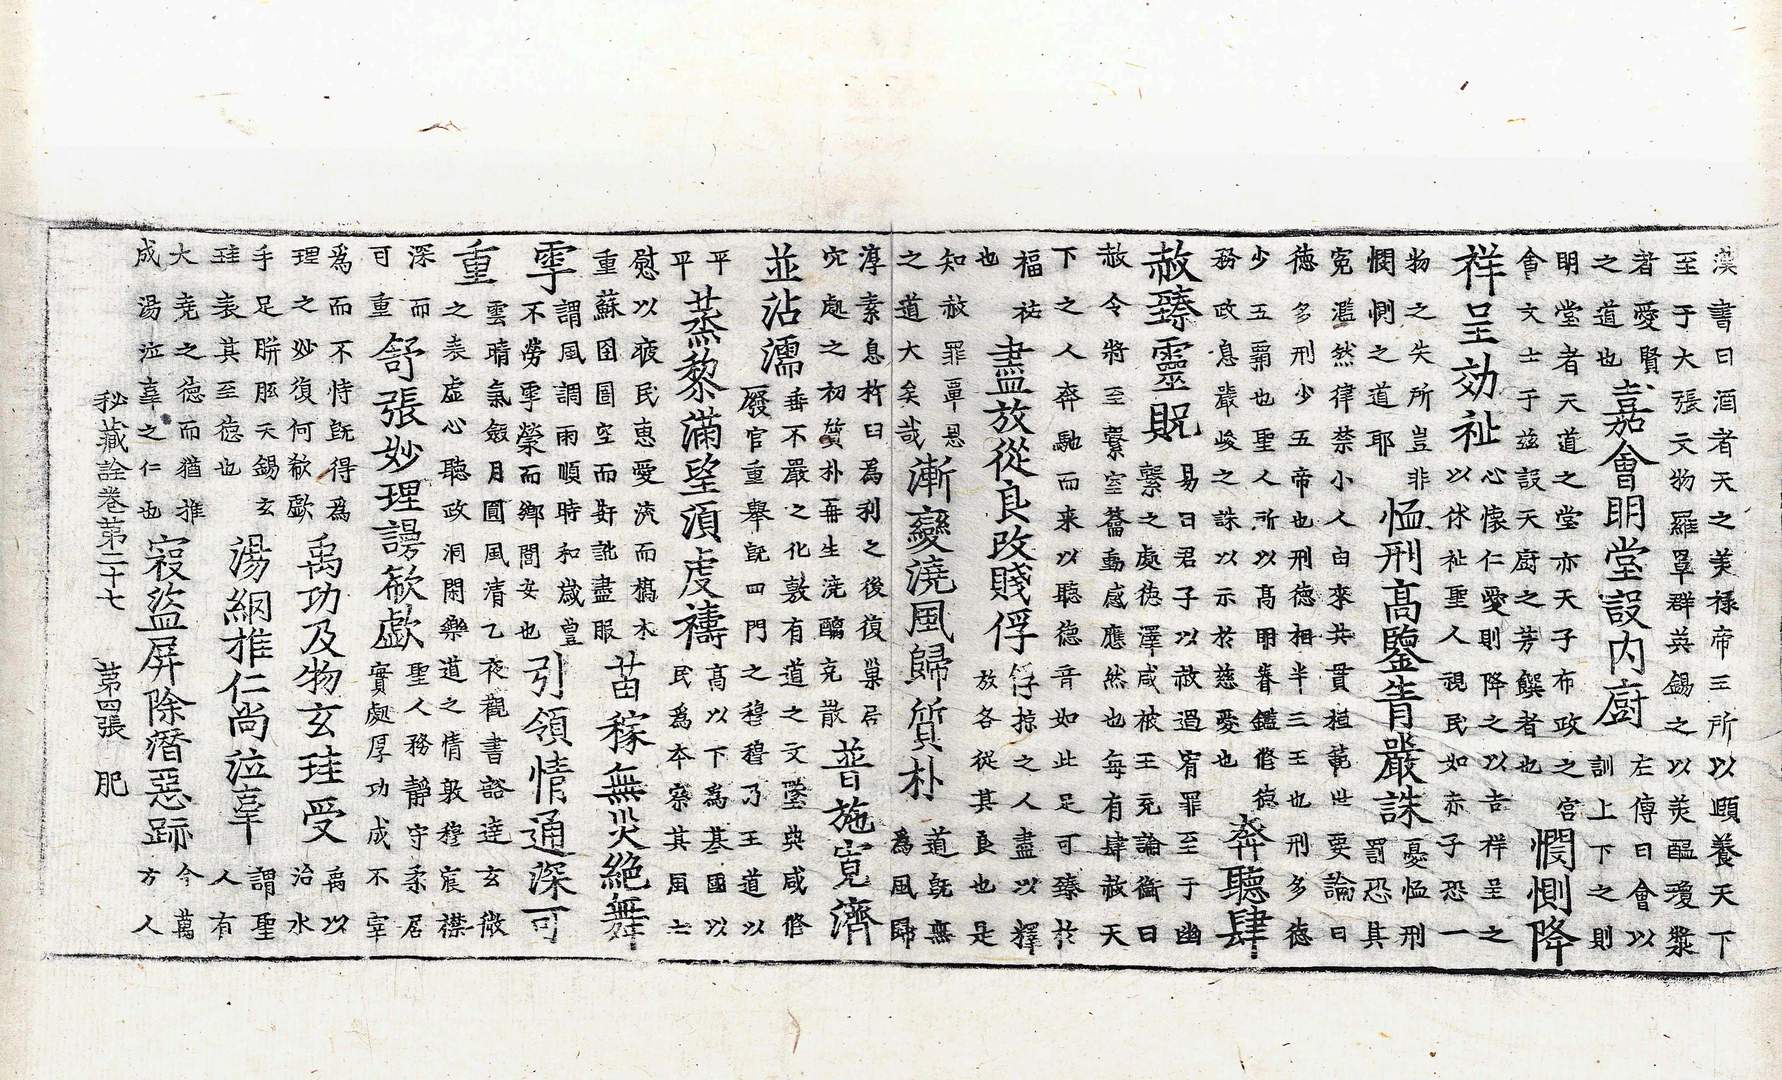 漢書曰酒者天之美祿帝王所以頤養天下
至于大張天物羅罩群英錫之以美醞瓊漿
者愛賢
之道也
嘉會明堂設内廚
左傳曰會以
訓上下之則
明堂者天道之堂亦天子布政之宮
會文士于兹設天廚之芳饌者也
憫惻降
祥呈効祉
心懷仁愛則降之以吉祥呈之
以休祉聖人視民如赤子恐一
物之失所豈非
憫惻之道耶
恤刑高鑒眚嚴誅
憂恤刑
罰恐其
冤濫然律禁小人白來共貫植範世要論曰
德多刑少五帝也刑德相半三王也刑多德
少五霸也聖人所以高明眷鑑修德
務政息嚴峻之誅以示於慈愛也
奔聽肆
赦臻靈貺
易曰君子以赦過宥罪至于幽
繫之處德澤咸被王充論衡曰
赦令將至繫室籥動感應然也每有肆赦天
下之人奔馳而来以聽德音如此足可臻於
福祐
也
盡放從良改賤俘
俘掠之人盡以釋
放各從其良也是
知赦罪辜恩
之道大矣哉
漸變澆風歸質朴
道旣無
為風歸
淳素息於曰為利之後復巢居
穴處之初質朴再生澆醨克散
普施寬濟
並沾濡
垂不嚴之化敷有道之文墜典咸修
廢官重舉旣四門之穆穆乃王道以
平
平
蒸黎滿望須虔禱
高以下為基國以
民為本察其風土
慰以疲民惠愛流而槁木
重蘇囹圄空而姧訛盡服
苗稼無災絶舞
雩
謂風調雨順時和歲豊
不勞雩禜而鄉閭安也
引領情通深可
重
雲晴氣斂月圓風清乙夜觀書谿達玄微
之表虛心聽政洞閑樂道之情敦穆宸襟
深而
可重
舒張妙理謗欷歔
聖人務靜守柔居
實處厚功成不宰
爲而不恃旣得爲
理之妙復何欷歔
禹功及物玄珪受
禹以
治水
手足胼胝天錫玄
珪表其至德也
湯網推仁尚泣辜
謂聖
人有
大堯之德而猶推
成湯泣辜之仁也
寇盜屏除潛惡跡
今萬
方人
秘藏詮卷第二十七　第四張　肥